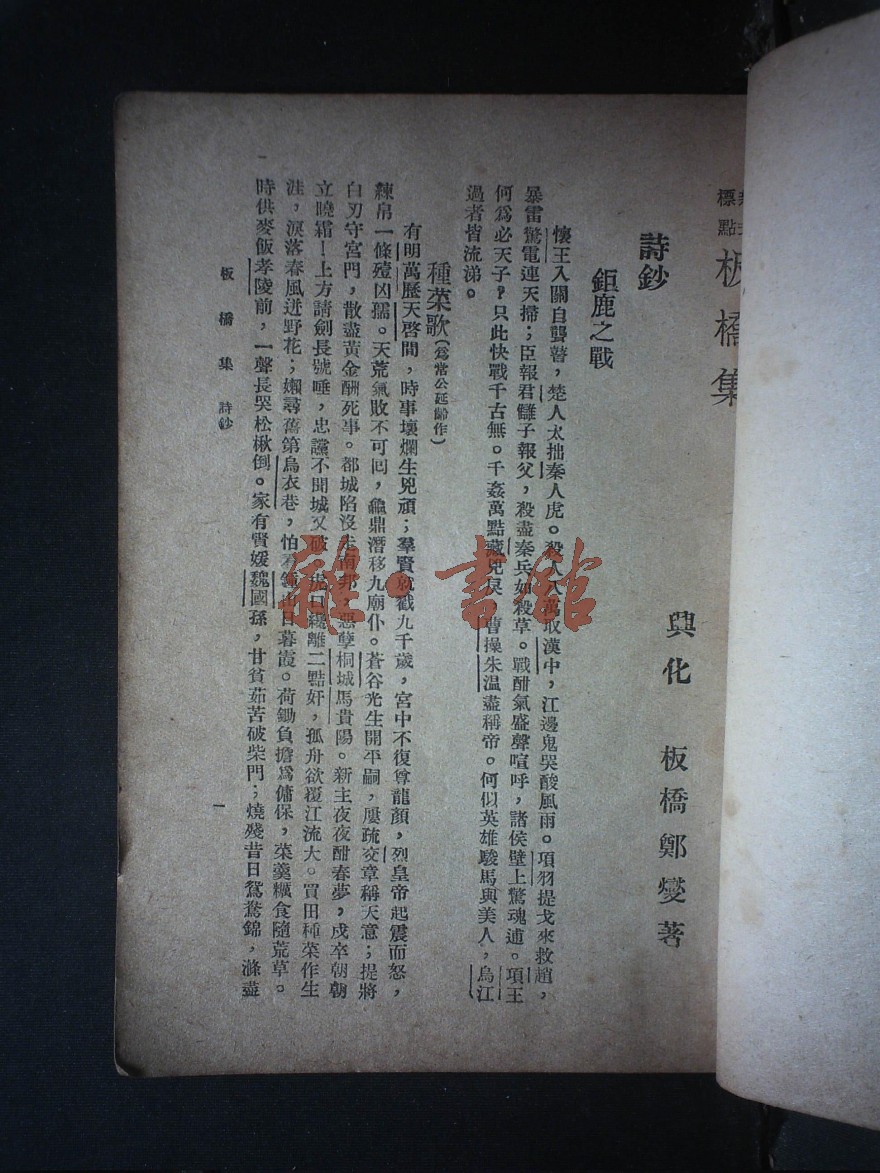 標點
板橋集
興化 板橋鄭燮著
詩鈔
鉅鹿之戰
懷王入關自聾瞽，楚人太拙秦人虎。殺人八萬取漢中，江邊鬼哭酸風雨。項羽提戈來救趙，
暴雷驚電連天掃；臣報君讎子報父，殺盡秦兵如殺草。戰酣氣盛聲喧呼，諸侯壁上驚魂逋。項王
何爲必天子？只此快戰千古無。千姦萬黠藏兇戾，曹操朱温盡稱帝。何似英雄駿馬與美人，烏江
過者皆流涕。
種菜歌（爲常公延齡作）
有明萬歷天啓間，時事壞爛生兇頑；羣賢就戮九千歲，宮中不復尊龍顏，烈皇帝起震而怒，
練帛一條殪凶孺。天荒氣敗不可囘，龜鼎潛移九廟仆。蒼谷先生開平嗣，屢疏交章稱天意；提將
白刃守宮門，散盡黃金酬死事。都城陷沒走南邦，惡孽桐城馬貴陽。新主夜夜酣春夢，戍卒朝朝
立曉霜！上方請劍長號唾，忠讜不聞城又破，虎口纔離二點奸，孤舟欲覆江流大。買田種菜作生
涯，淚落春風迸野花；嬾尋舊第烏衣巷，怕看鍾山日暮霞。荷鋤負擔爲傭保，菜羹糲食隨荒草。
時供麥飯孝陵前，一聲長哭松楸倒。家有賢媛魏國孫，甘貧茹苦破柴門；燒殘昔日鴛鴦錦，滌盡
板橋集 詩鈔
一
雜·書館